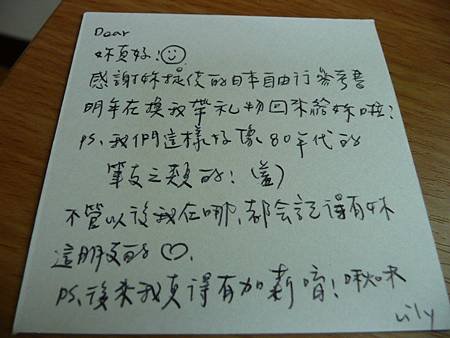 Dear
妳頁好!
感謝妳提供的日本自由行參考書
明年在換我帶礼物回來給妳啦!
PS、我們這樣好像80年代的
筆友之類的!(羞)
不管以後我在哪,都会記得有妳
這朋友的♡.
PS、後來我真得有加薪唷!啾咪
Lily